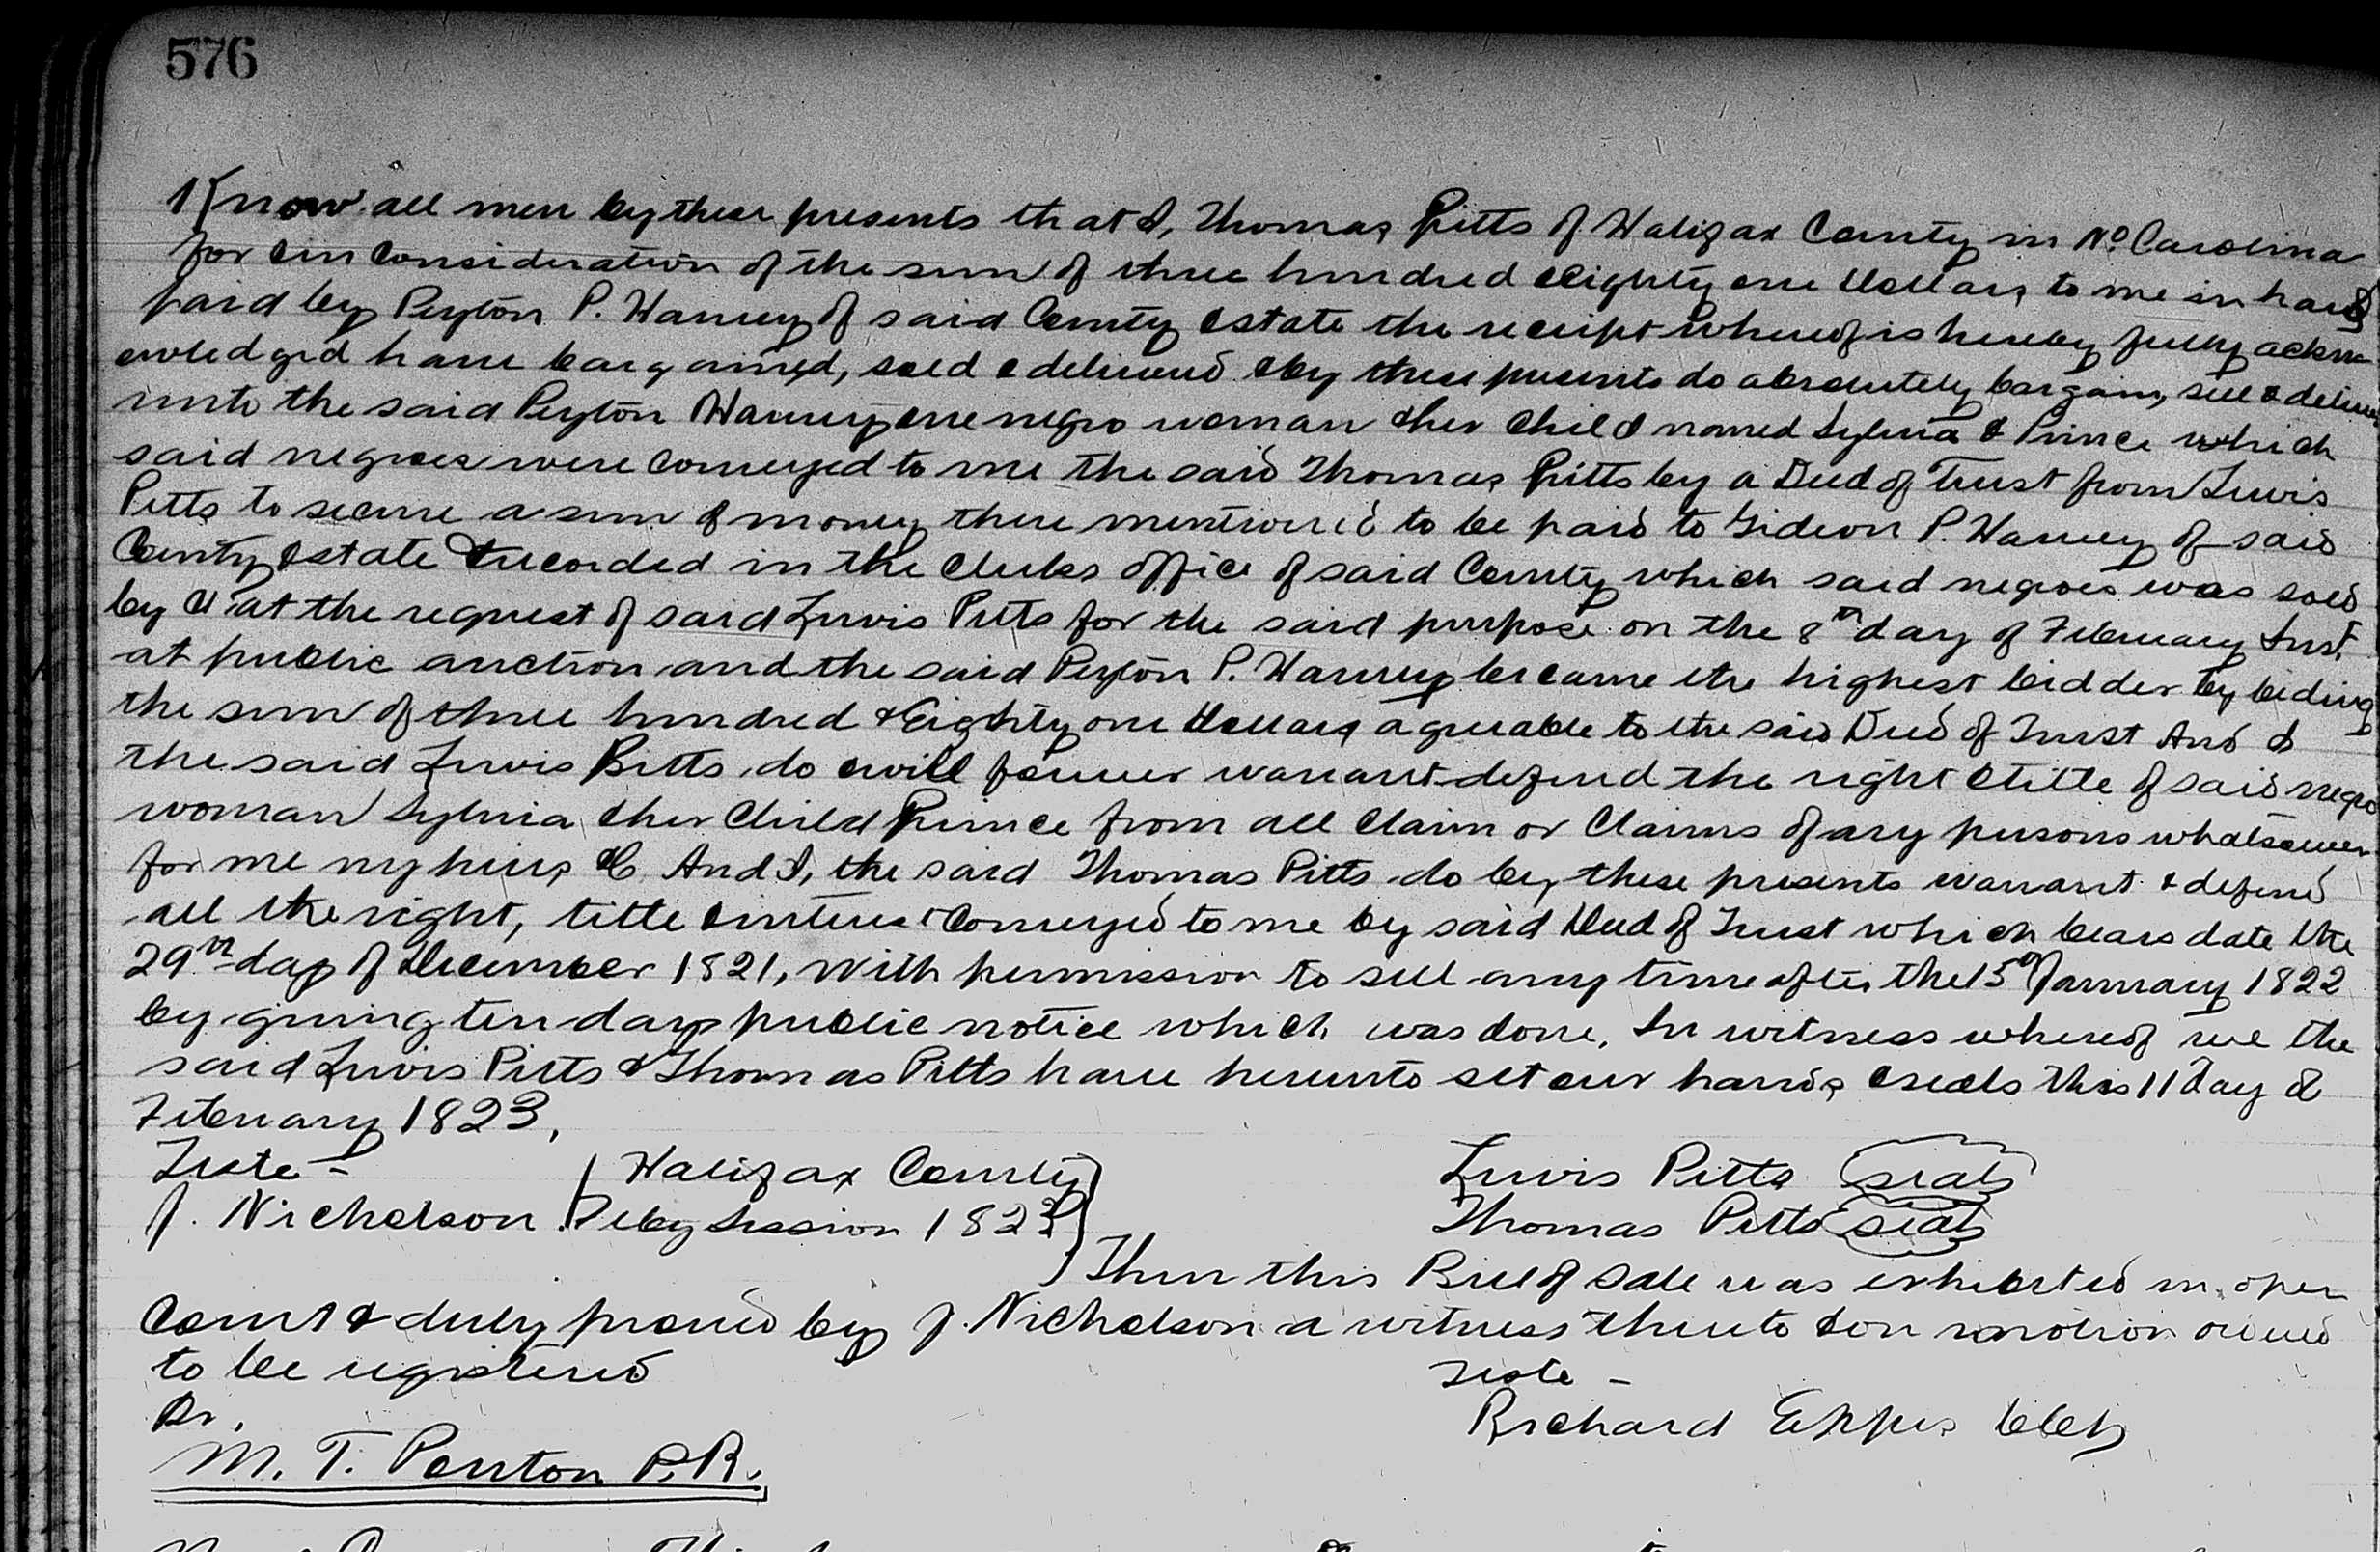 576
Know all men by these presents that I, Thomas Pitts of Halifax County in No. Carolina
for & in consideration of the sum of three hundred & Eighty one Dollars to me in hand
paid by Peyton P. Harvey of said County & State the receipt whereof is hereby fully ackn
owledged have bargained, sold & delivered & by these presents do absolutely bargain, sell & deliver
unto the said Peyton Harvey one negro woman & her child named Sylvia & Prince which
said negroes were conveyed to me the said Thomas Pitts by a Deed of Trust from Lewis
Pitts to secure a sum of money there mentioned to be paid to Gideon P. Harvey of said
County & State & recorded in the Clerks office of said County which said negroes was sold
by at the request of said Lewis Pitts for the said purpose on the 8th day of February Inst.
at public auction and the said Peyton P. Harvey became the highest bidder by biding
the sum of three hundred & Eighty one Dollars agreable to the said Deed of Trust And I
the said Lewis Pitts do & will forever warrant & defend the right & title of said negro
woman Sylvia & her Child Prince from all Claim or Claims of any persons whatsoever
for me my heirs &C And I, the said Thomas Pitts do by these presents warrant & defend
all the right, title & interest conveyed to me by said Deed of Trust which bears date the
29th day of December 1821, With permission to sell any time after the 15th January 1822
by giving ten days public notice which was done. In witness whereof we the
said Lewis Pitts & Thomas Pitts have hereunto set our hands & seals this 11 day of
February 1823.
Teste - Halifax County Lewis Pitts seal
J. Nicholson Feby Session 1823 Thomas Pitts seal
Then this Bill of Sale was exhibited in open
Court & duly proved by J. Nicholson a witness thereto & on motion ordered
to be registered Teste -
Richard Eppes Clk
M. T. Ponton P.R.